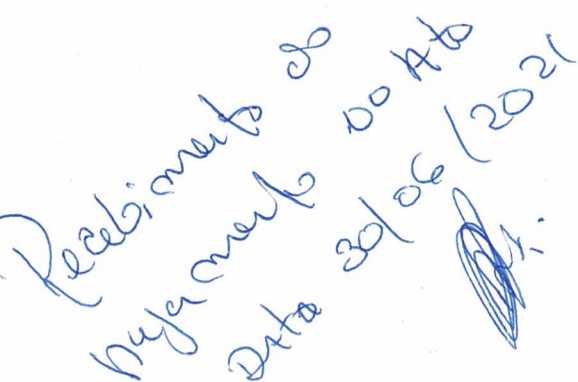 Recebimento do
pagamento do Ato
Data 30/06/2021